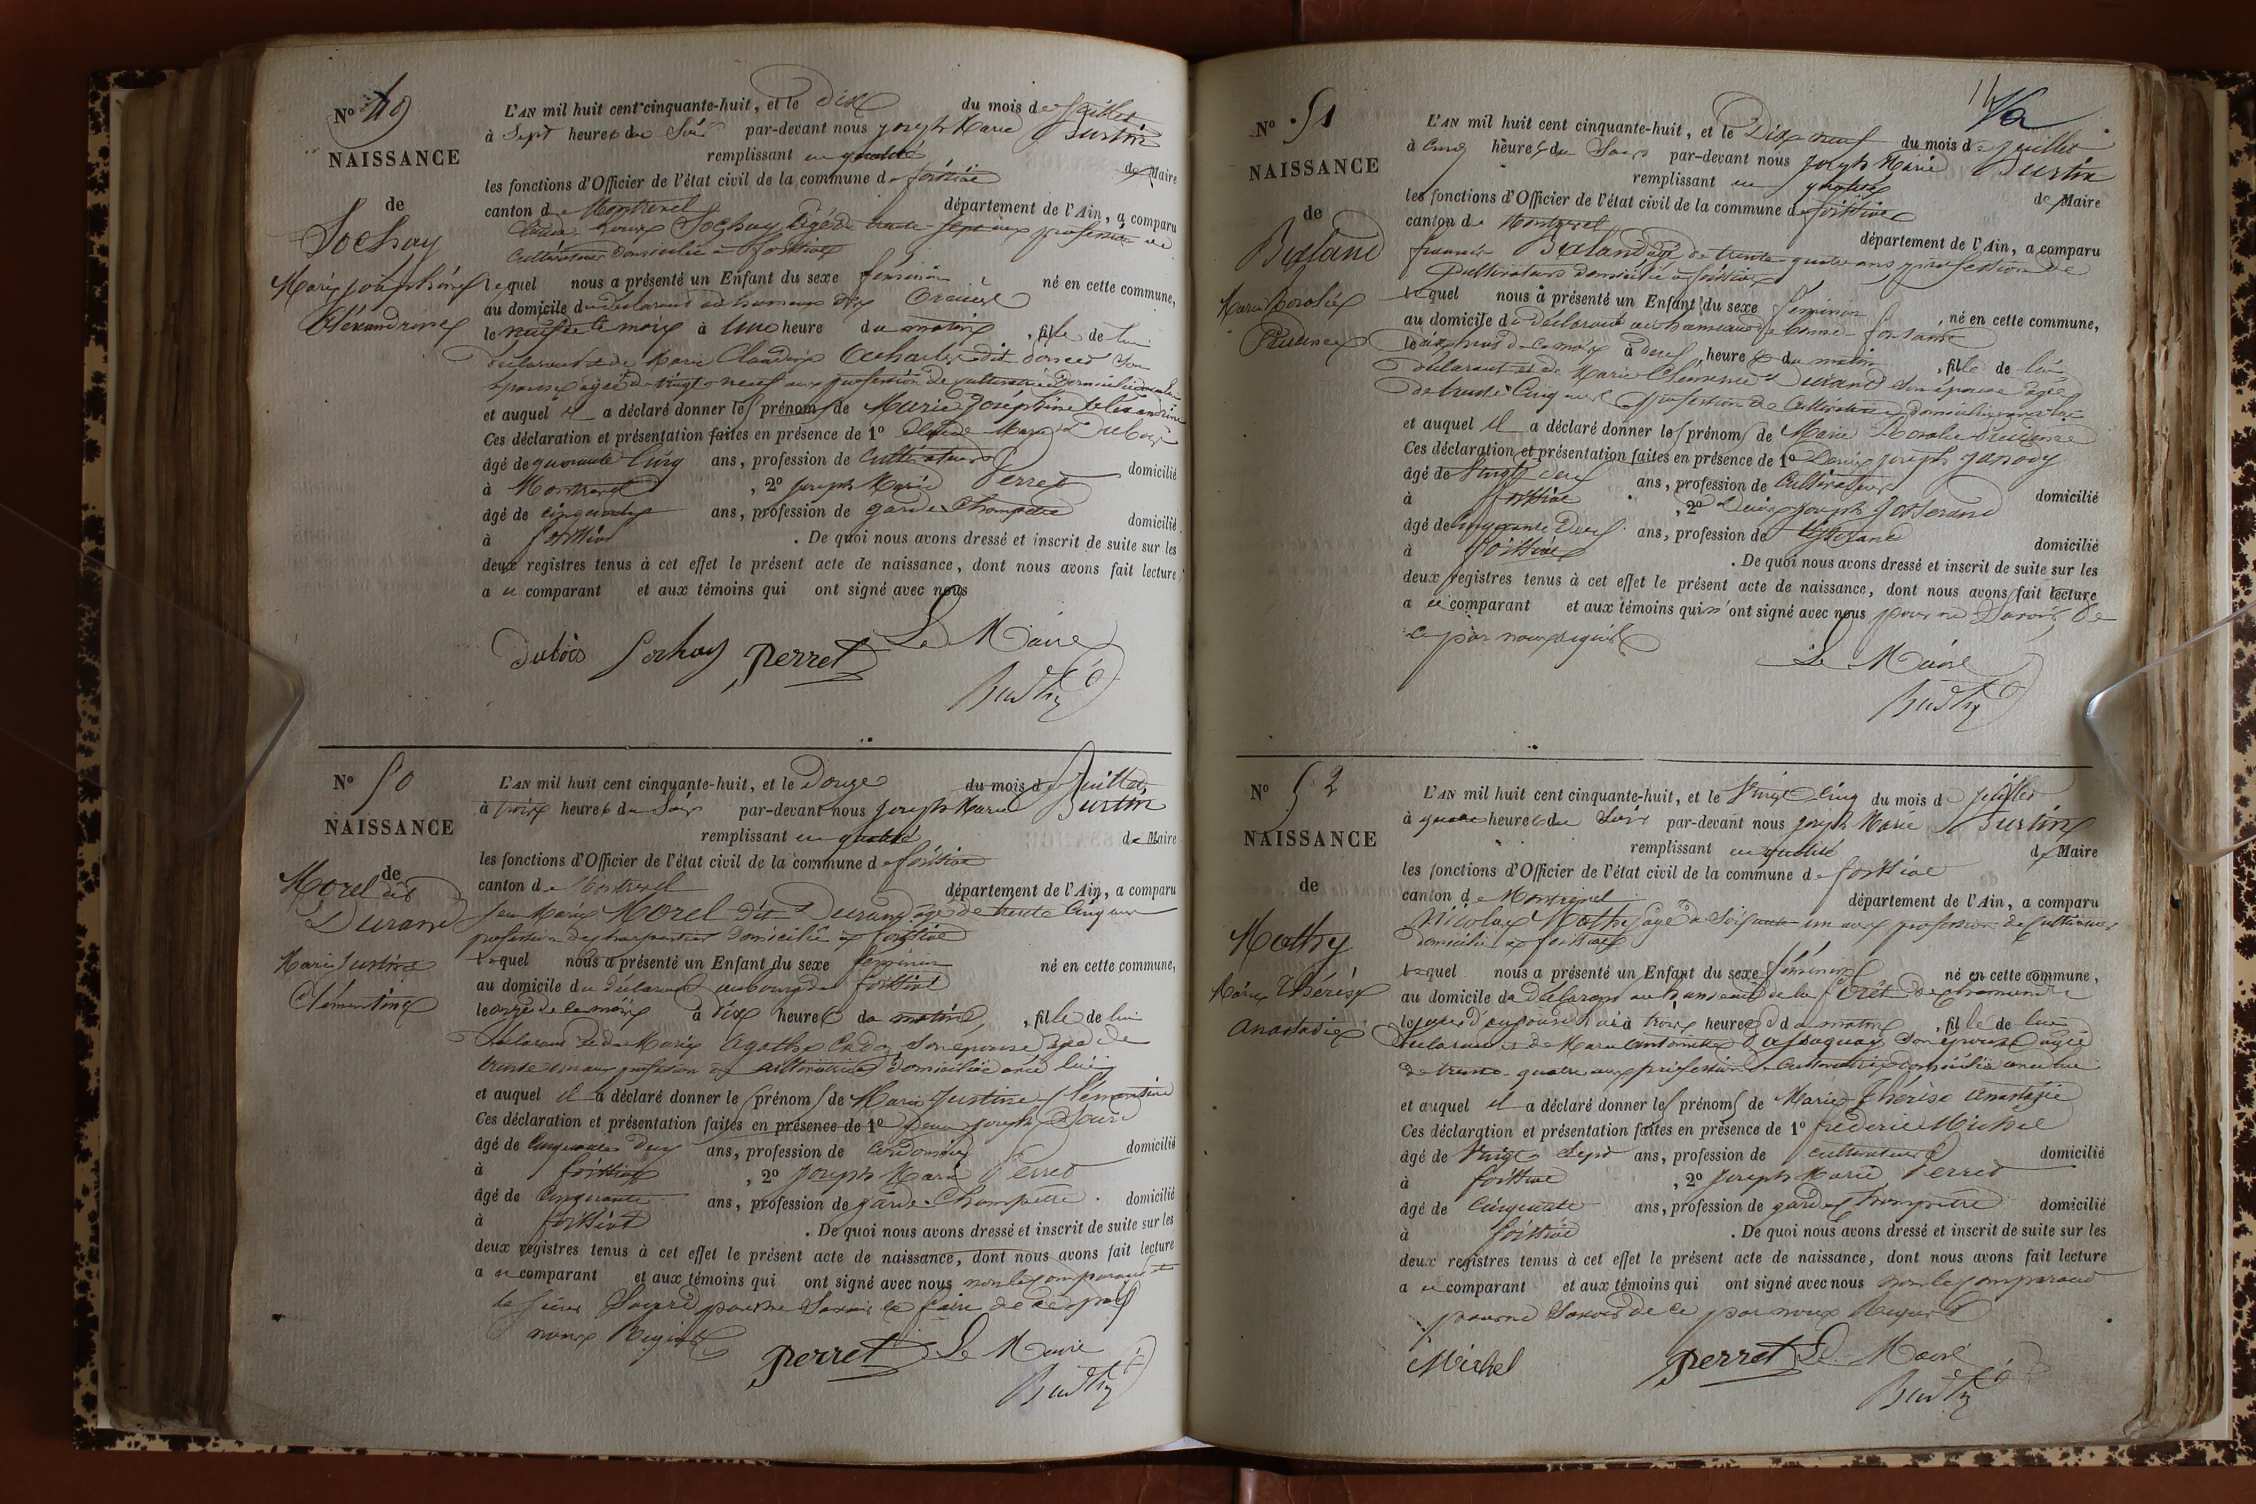 N° 49
NAISSANCE
de
Sochay
Marie Joséphine
Alexandrine
L'AN mil huit cent cinquante-huit, et le Dix du mois de Juillet
à Sept heures du Soir par-devant nous Joseph Marie Burtin
remplissant en qualité de Maire
les fonctions d'Officier de l'état civil de la commune de foissiat
canton de Montrevel département de l'Ain, a comparu
Sochay âgé de trente sept ans profession de
Cultivateur domicilié à foissiat
Lequel nous a présenté un Enfant du sexe féminin né en cette commune,
au domicile du déclarant au hameau des
le neuf de ce mois à Une heure du matin, fille de lui
déclarant et de Marie Claudine dit son
épouse âgée de vingt neuf ans profession de cultivatrice domiciliée avec lui
et auquel il a déclaré donner les prénoms de Marie Joséphine Alexandrine
Ces déclaration et présentation faites en présence de 1° Marie Dubois
âgé de quarante Cinq ans, profession de Cultivateur domicilié
à Montrevel, 2° Joseph Marie Perret
âgé de cinquante ans, profession de garde Champêtre domicilié
à foissiat. De quoi nous avons dressé et inscrit de suite sur les
deux registres tenus à cet effet le présent acte de naissance, dont nous avons fait lecture
a u comparant et aux témoins qui ont signé avec nous
Le Maire
Dubois Sochay Perret
Burtin
N° 50
NAISSANCE
de
Morel dit
Durand
Marie Justine
Clémentine
L'AN mil huit cent cinquante-huit, et le Douze du mois de Juillet
à trois heures du Soir par-devant nous Joseph Marie Burtin
remplissant en qualité de Maire
les fonctions d'Officier de l'état civil de la commune de foissiat
canton de Montrevel département de l'Ain, a comparu
Jean Marie Morel dit Durand âgé de trente Cinq ans
profession de charpentier domicilié à foissiat
Lequel nous a présenté un Enfant du sexe féminin né en cette commune,
au domicile du déclarant au bourg de foissiat
le onze de ce mois à dix heures du matin, fille de lui
déclarant et de Marie Agathe son épouse âgée de
trente un ans profession de cultivatrice domiciliée avec lui
et auquel il a déclaré donner les prénoms de Marie Justine Clémentine
Ces déclaration et présentation faites en présence de 1° Joseph
âgé de Cinquante deux ans, profession de Cordonnier domicilié
à foissiat, 2° Joseph Marie Perret
âgé de Cinquante ans, profession de garde Champêtre domicilié
à foissiat. De quoi nous avons dressé et inscrit de suite sur les
deux registres tenus à cet effet le présent acte de naissance, dont nous avons fait lecture
a u comparant et aux témoins qui ont signé avec nous non le comparant et
le sieur pour ne Savoir le faire de ce par
nous Requis
Perret Le Maire
Burtin
N° 51
NAISSANCE
de
Berland
Marie Rosalie
Prudence
L'AN mil huit cent cinquante-huit, et le Dix neuf du mois de Juillet
à Cinq heures du Soir par-devant nous Joseph Marie Burtin
remplissant en qualité de Maire
les fonctions d'Officier de l'état civil de la commune de foissiat
canton de Montrevel département de l'Ain, a comparu
Berland âgé de trente quatre ans profession de
Cultivateur domicilié à foissiat
Lequel nous a présenté un Enfant du sexe féminin né en cette commune,
au domicile du déclarant au hameau de bonne fontaine
le dix neuf de ce mois à deux heures du matin, fille de lui
déclarant et de Marie Clémence Durand son épouse âgée
de trente Cinq ans profession de Cultivatrice domiciliée avec lui
et auquel il a déclaré donner les prénoms de Marie Rosalie Prudence
Ces déclaration et présentation faites en présence de 1° Denis Joseph
âgé de Vingt deux ans, profession de Cultivateur domicilié
à foissiat, 2° Denis Joseph Josserand
âgé de cinquante Deux ans, profession de tisserand domicilié
à foissiat. De quoi nous avons dressé et inscrit de suite sur les
deux registres tenus à cet effet le présent acte de naissance, dont nous avons fait lecture
a u comparant et aux témoins qui n'ont signé avec nous pour ne Savoir, de
ce par nous requis
Le Maire
Burtin
N° 52
NAISSANCE
de
Mathy
Marie Thérèse
Anastasie
L'AN mil huit cent cinquante-huit, et le Vingt Cinq du mois de Juillet
à quatre heures du Soir par-devant nous Joseph Marie Burtin
remplissant en qualité de Maire
les fonctions d'Officier de l'état civil de la commune de foissiat
canton de Montrevel département de l'Ain, a comparu
Nicolas Mathy âgé de Soixante un ans profession de Cultivateur
domicilié à foissiat
Lequel nous a présenté un Enfant du sexe féminin né en cette commune,
au domicile du déclarant au hameau de la forêt
le jour d'aujourd'hui à trois heures du matin, fille de lui
déclarant et de Marie Antoinette son épouse âgée
de trente quatre ans profession de Cultivatrice domiciliée avec lui
et auquel il a déclaré donner les prénoms de Marie Thérèse Anastasie
Ces déclaration et présentation faites en présence de 1° frédéric Michel
âgé de Vingt Sept ans, profession de cultivateur domicilié
à foissiat, 2° Joseph Marie Perret
âgé de Cinquante ans, profession de garde Champêtre domicilié
à foissiat. De quoi nous avons dressé et inscrit de suite sur les
deux registres tenus à cet effet le présent acte de naissance, dont nous avons fait lecture
a u comparant et aux témoins qui ont signé avec nous non le Comparant
pour ne Savoir de ce par nous Requis
Michel Perret Le Maire
Burtin